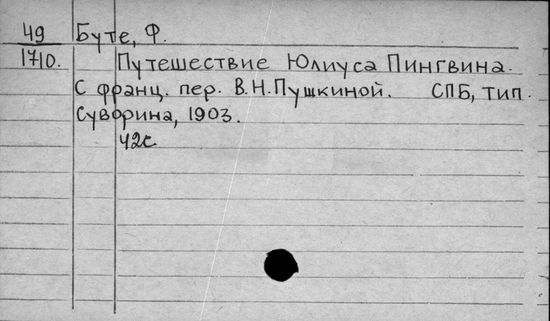 49 Буте, Ф.
1710. Путешествие Юлиуса Пингвина.
С франц. пер. В.Н.Пушкиной. СПБ, тип.
Суворина, 1903.
42с